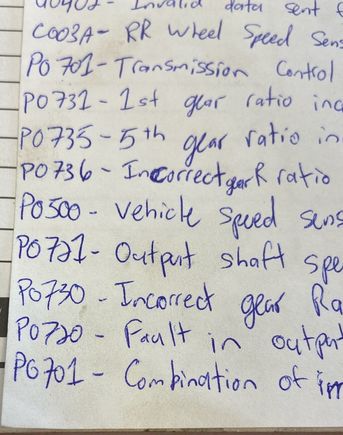 U0402 - Invalid data sent f
C003A - RR Wheel Speed Sens
P0701 - Transmission Control
P0731 - 1st gear ratio inc
P0735 - 5th gear ratio in
P0736 - Incorrect gear R ratio
P0500 - Vehicle Speed sens
P0721 - Output shaft spe
P0730 - Incorrect gear Ra
P0720 - Fault in output
P0701 - Combination of im